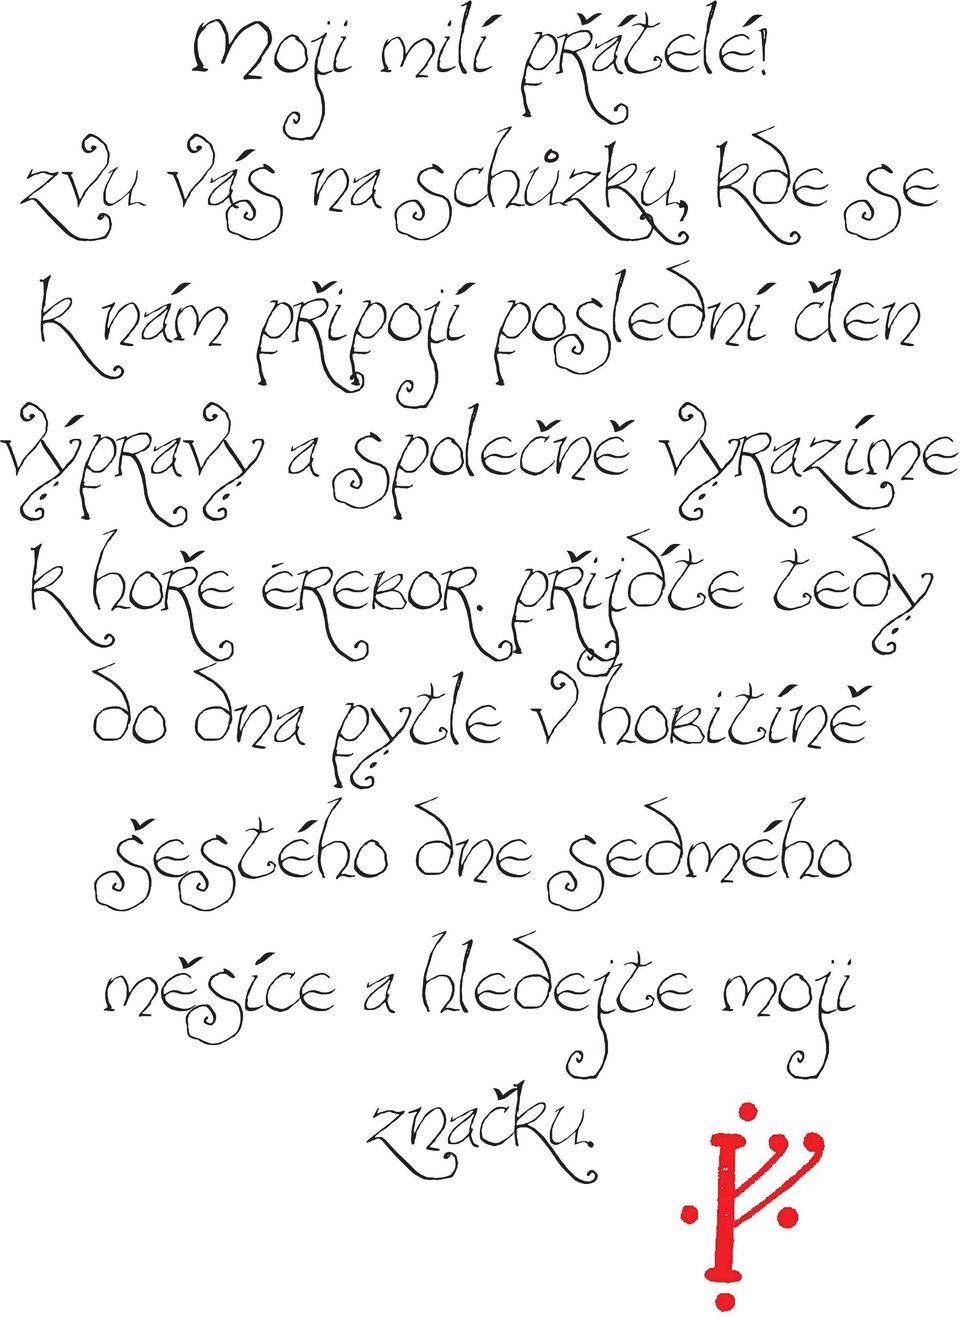 Moji milí přátelé!
zvu vás na schůzku, kde se
k nám připojí poslední člen
výpravy a společně vyrazíme
k hoře érebor. přijďte tedy
do dna pytle v hobitíně
šestého dne sedmého
měsíce a hledejte moji
značku.